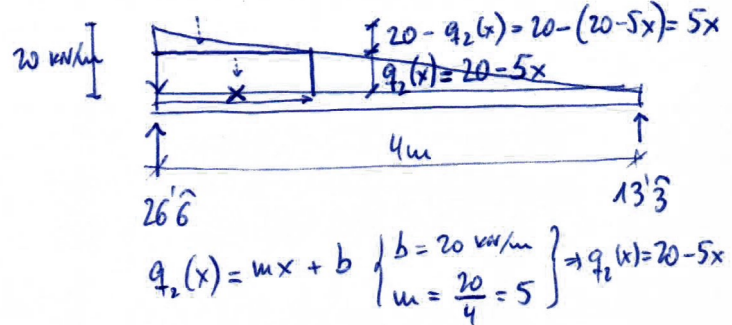 20 - q₂(x) = 20 - (20-5x) = 5x
20 kN/m
q₂(x) = 20 - 5x
x
4m
26'6̂
13'3̂
q₂(x) = mx + b { b = 20 kN/m
m = 20/4 = 5 } ⇒ q₂(x) = 20 - 5x